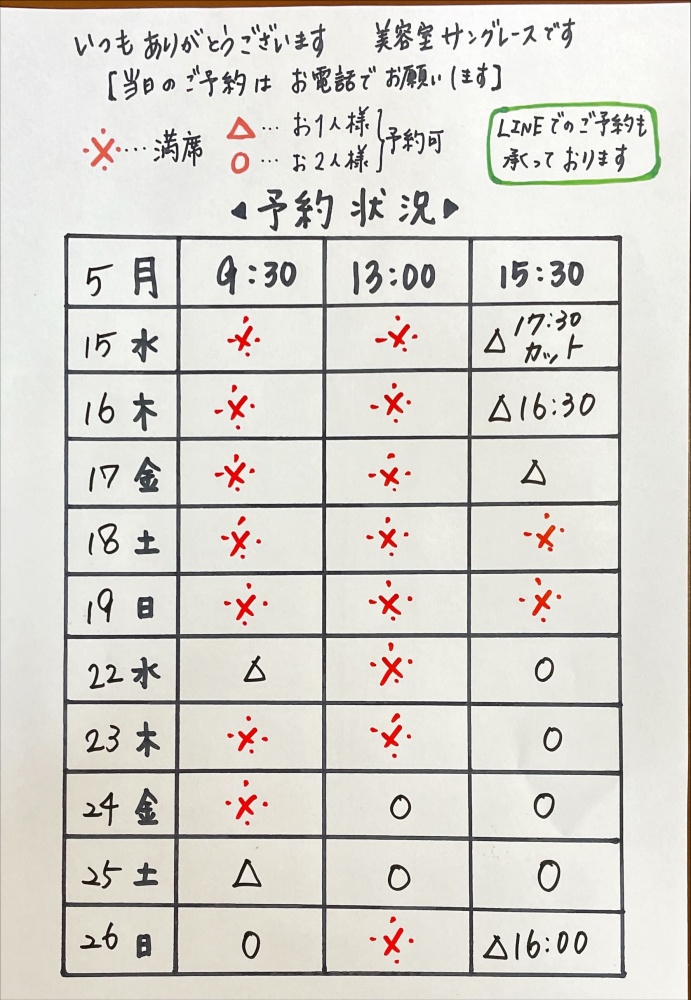 いつもありがとうございます 美容室サングレースです
[当日のご予約は お電話でお願いします]
※…満席 △…お1人様 ○…お2人様 予約可
LINEでのご予約も
承っております
◀予約状況▶
5月 9:30 13:00 15:30
15 水 ※ ※ △17:30 カット
16 木 ※ ※ △16:30
17 金 ※ ※ △
18 土 ※ ※ ※
19 日 ※ ※ ※
22 水 △ ※ ○
23 木 ※ ※ ○
24 金 ※ ○ ○
25 土 △ ○ ○
26 日 ○ ※ △16:00